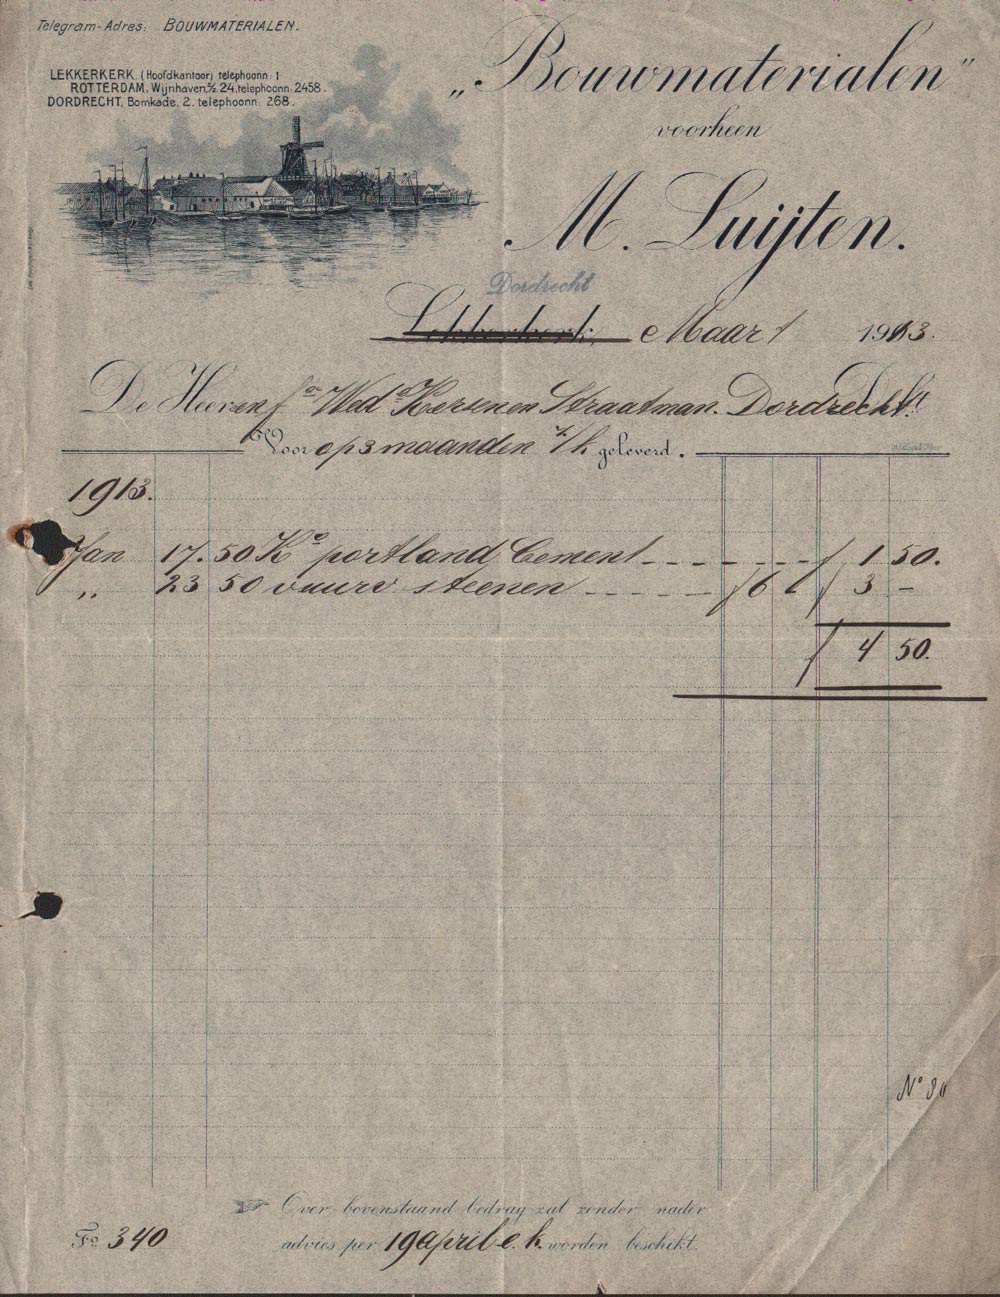 Telegram-Adres: BOUWMATERIALEN.
LEKKERKERK, (Hoofdkantoor) telephoonn: 1
ROTTERDAM, Wijnhaven, Z/Z. 24, telephoonn: 2458.
DORDRECHT, Bomkade, 2. telephoonn: 268.
„Bouwmaterialen"
voorheen
M. Luijten.
Dordrecht
Lekkerkerk, Maart 1913.
De Heeren fa Wed Straatman. Dordrecht. Dt
Voor op 3 maanden geleverd.
1913.
Jan 17. 50 Ko portland Cement f 1 50.
„ 23 50 vuurv. steenen f 6 f 3 -
f 4 50.
No
Over bovenstaand bedrag zal zonder nader
Fo. 340 advies per 19 april e.k. worden beschikt.